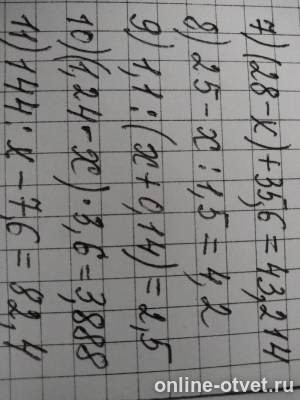 7) (28-x)+35,6=43,214
8) 25-x:1,5=4,2
9) 1,1:(x+0,14)=2,5
10) (1,24-x)·3,6=3,888
11) 144:x-7,6=82,4
online-otvet.ru